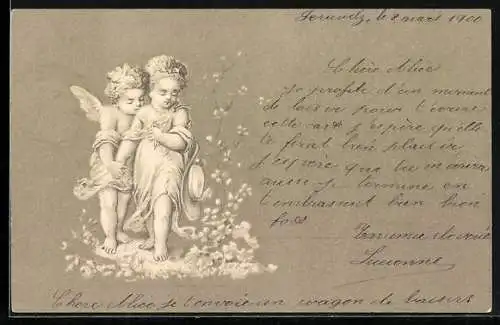 le 8 mars 1900
Chère Alice
Je profite d'un moment
de loisir pour t'écrire
cette carte j'espère qu'elle
te ferat bien plaisir
j'espère que tu m'écriras
aussi je termine en
t'embrassant bien bien
fort
Ton amie dévouée
Suzanne
Chère Alice je t'envoie un wagon de baisers